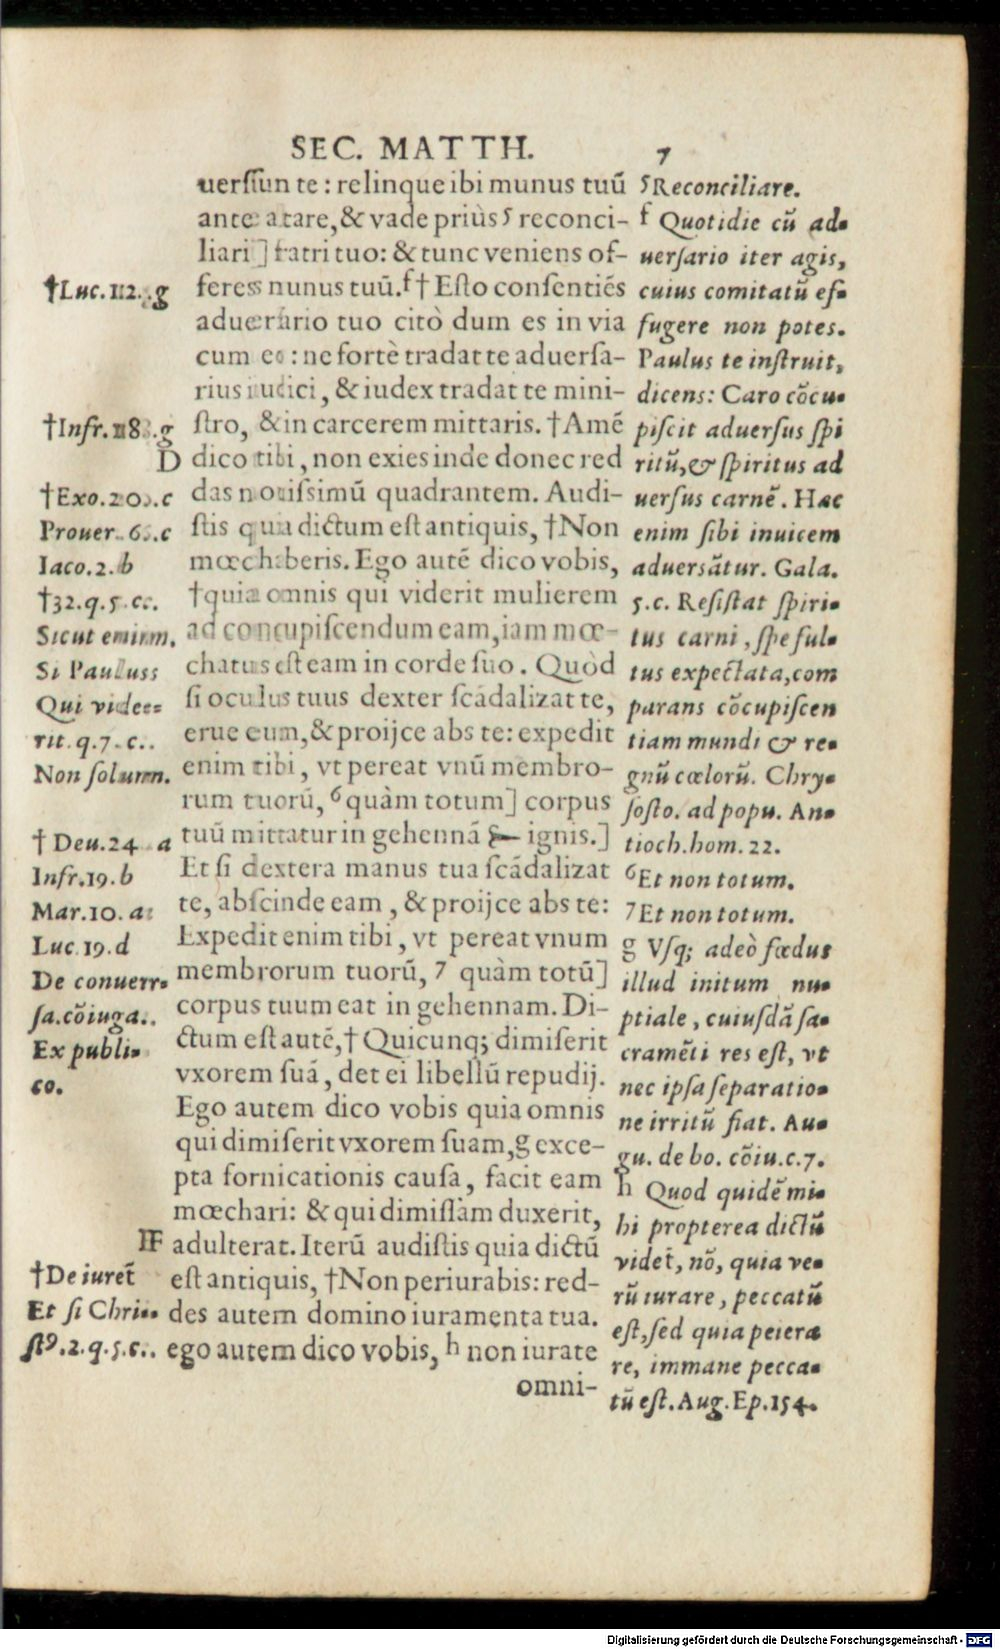 SEC. MATTH. 7
uersũn te: relinque ibi munus tuũ
ante atare, & vade priùs 5 reconci-
liari ] fratri tuo: & tunc veniens of-
feres nunus tuũ. f † Esto consentiẽs
aduersario tuo citò dum es in via
cum eo: ne fortè tradat te aduersa-
rius iudici, & iudex tradat te mini-
stro, & in carcerem mittaris. † Amẽ
dico tibi, non exies inde donec red
das nouissimũ quadrantem. Audi-
stis quia dictum est antiquis, †Non
mœchaberis. Ego autẽ dico vobis,
†quia omnis qui viderit mulierem
ad concupiscendum eam, iam mœ-
chatus est eam in corde suo. Quòd
si oculus tuus dexter scãdalizat te,
erue eum, & proijce abs te: expedit
enim tibi, vt pereat vnũ membro-
rum tuorũ, 6 quàm totum] corpus
tuũ mittatur in gehennã ignis.]
Et si dextera manus tua scãdalizat
te, abscinde eam, & proijce abs te:
Expedit enim tibi, vt pereat vnum
membrorum tuorũ, 7 quàm totũ]
corpus tuum eat in gehennam. Di-
ctum est autẽ, † Quicunq; dimiserit
vxorem suã, det ei libellũ repudij.
Ego autem dico vobis quia omnis
qui dimiserit vxorem suam, g exce-
pta fornicationis causa, facit eam
mœchari: & qui dimissam duxerit,
adulterat. Iterũ audistis quia dictũ
est antiquis, †Non periurabis: red-
des autem domino iuramenta tua.
ego autem dico vobis, h non iurate
omni-
†Luc. 12. g
†Infr. 18. g
D
†Exo. 20. c
Prouer. 6. c
Iaco. 2. b
†32. q. 5. c.
Sicut enim.
Si Paulus
Qui vide-
rit. q. 7. c.
Non solum.
† Deu. 24 a
Infr. 19. b
Mar. 10. a
Luc. 19. d
De conuer-
sa. cõiuga.
Ex publi-
co.
F
†De iuret̃
Et si Chri-
stꝰ. 2. q. 5. c.
5 Reconciliare.
f Quotidie cũ ad-
uersario iter agis,
cuius comitatũ ef-
fugere non potes.
Paulus te instruit,
dicens: Caro cõcu-
piscit aduersus spi
ritũ, & spiritus ad
uersus carnẽ. Hæc
enim sibi inuicem
aduersãtur. Gala.
5. c. Resistat spiri-
tus carni, spe ful-
tus expectata, com
parans cõcupiscen
tiam mundi & re-
gnũ cœlorũ. Chry-
sosto. ad popu. An-
tioch. hom. 22.
6 Et non totum.
7 Et non totum.
g Vsq; adeò fœdus
illud initum nu-
ptiale, cuiusdã sa-
cramẽti res est, vt
nec ipsa separatio-
ne irritũ fiat. Au-
gu. de bo. cõiu. c. 7.
h Quod quidẽ mi-
hi propterea dictũ
videt̃, nõ, quia ve-
rũ iurare, peccatũ
est, sed quia peiera
re, immane pecca-
tũ est. Aug. Ep. 154.
Digitalisierung gefördert durch die Deutsche Forschungsgemeinschaft - DFG